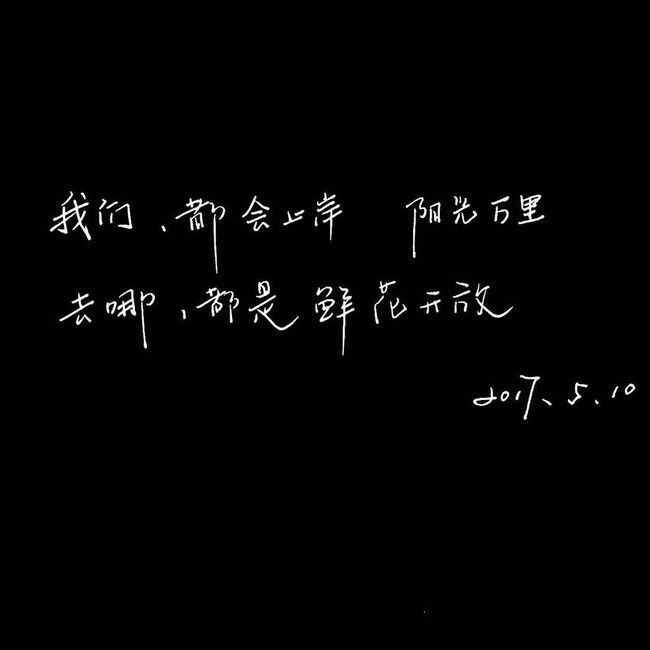 我们、都会上岸 阳光万里
去哪、都是鲜花开放
2017、5.10